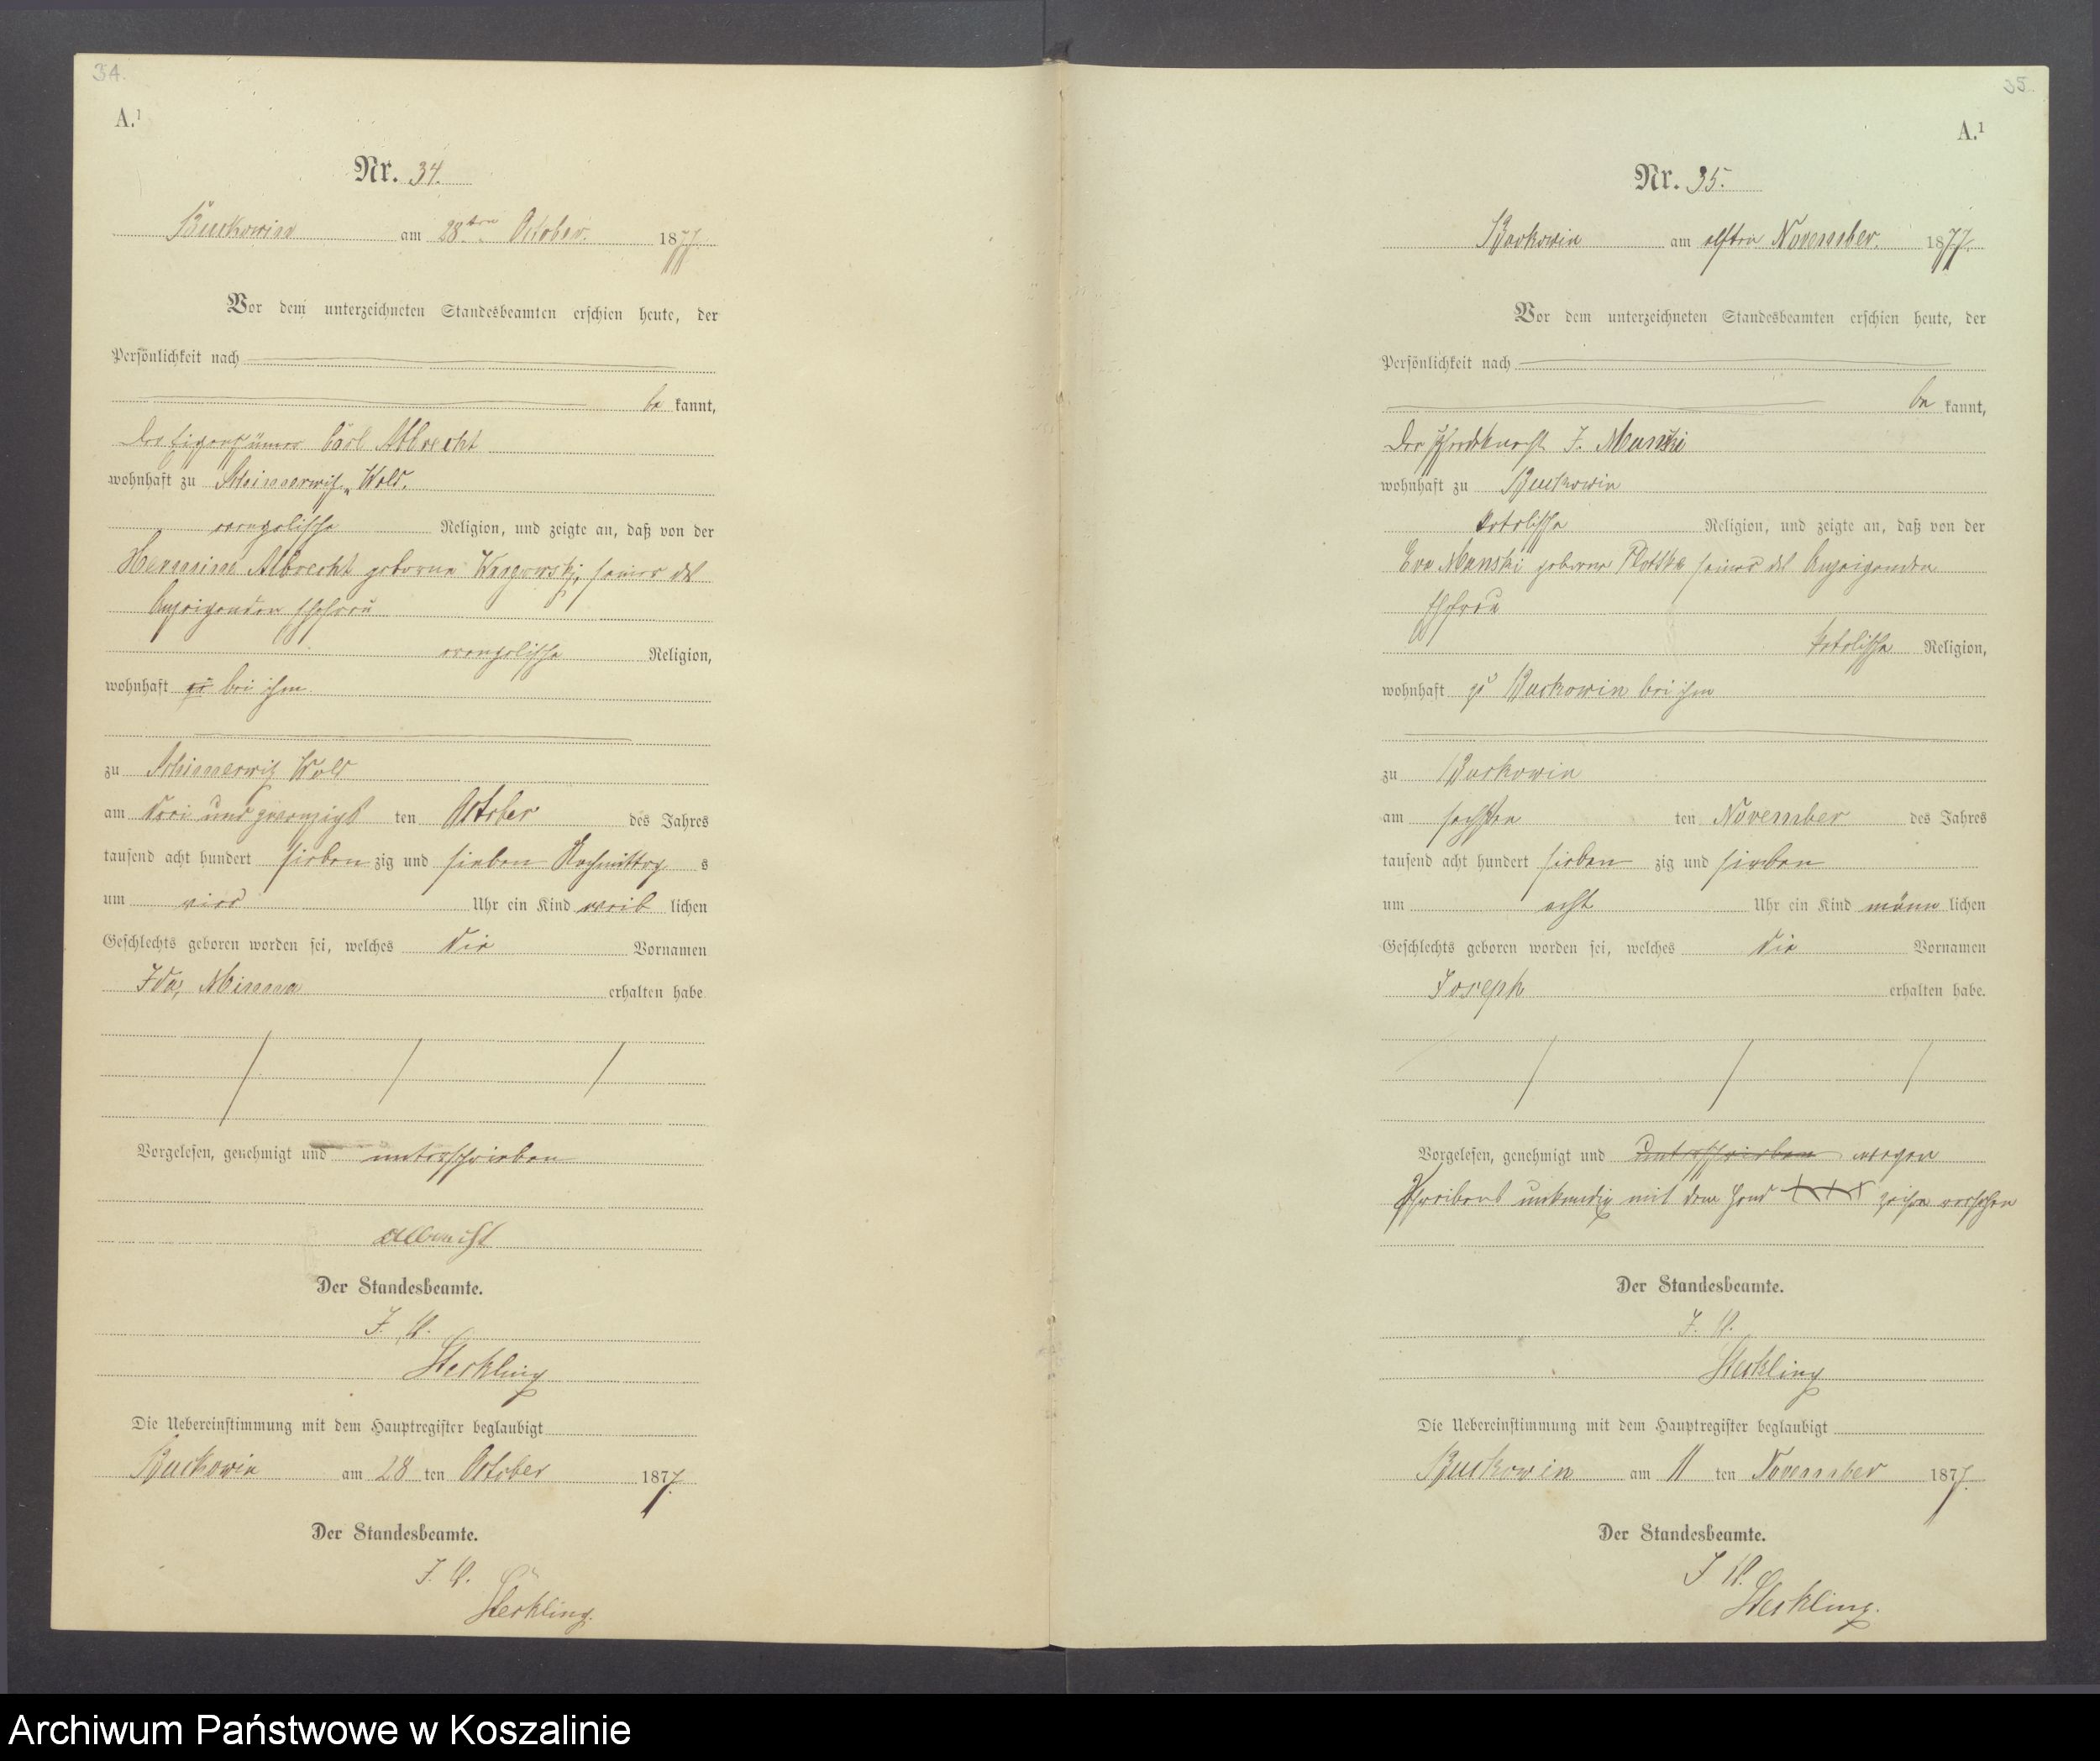 34.
A.¹
Nr. 34.
Buckowin am 28ten October. 1877.
Vor dem unterzeichneten Standesbeamten erschien heute, der
Persönlichkeit nach
be kannt,
Der Eigenthümer Carl Albrecht
wohnhaft zu Schimmerwitz Wold.
evangelische Religion, und zeigte an, daß von der
Hermine Albrecht geborene seiner des
Anzeigenden Ehefrau
evangelische Religion,
wohnhaft zu bei ihm
zu Schimmerwitz Wold
am drei und zwanzigst ten October des Jahres
tausend acht hundert sieben zig und sieben Nachmittag s
um vier Uhr ein Kind weib lichen
Geschlechts geboren worden sei, welches die Vornamen
Ida, Minna erhalten habe
Vorgelesen, genehmigt und unterschrieben
Albrecht
Der Standesbeamte.
J. V.
Sterkling
Die Uebereinstimmung mit dem Hauptregister beglaubigt
Buckowin am 28 ten October 1877.
Der Standesbeamte.
J. V.
Sterkling.
35.
A.¹
Nr. 35.
Buckowin am elften November. 1877.
Vor dem unterzeichneten Standesbeamten erschien heute, der
Persönlichkeit nach
be kannt,
Der Pferdeknecht J. Manski
wohnhaft zu Buckowin
katolische Religion, und zeigte an, daß von der
Eva Manski geborne Plottka seiner des Anzeigenden
Ehefrau
katolische Religion,
wohnhaft zu Buckowin bei ihm
zu Buckowin
am sechsten ten November des Jahres
tausend acht hundert sieben zig und sieben
um acht Uhr ein Kind männ lichen
Geschlechts geboren worden sei, welches die Vornamen
Joseph erhalten habe.
Vorgelesen, genehmigt und unterschrieben wegen
Schreibens unkundig mit dem Hand +++ zeichen versehen
Der Standesbeamte.
J. V.
Sterkling
Die Uebereinstimmung mit dem Hauptregister beglaubigt
Buckowin am 11 ten November 1877.
Der Standesbeamte.
J V.
Sterkling.
Archiwum Państwowe w Koszalinie